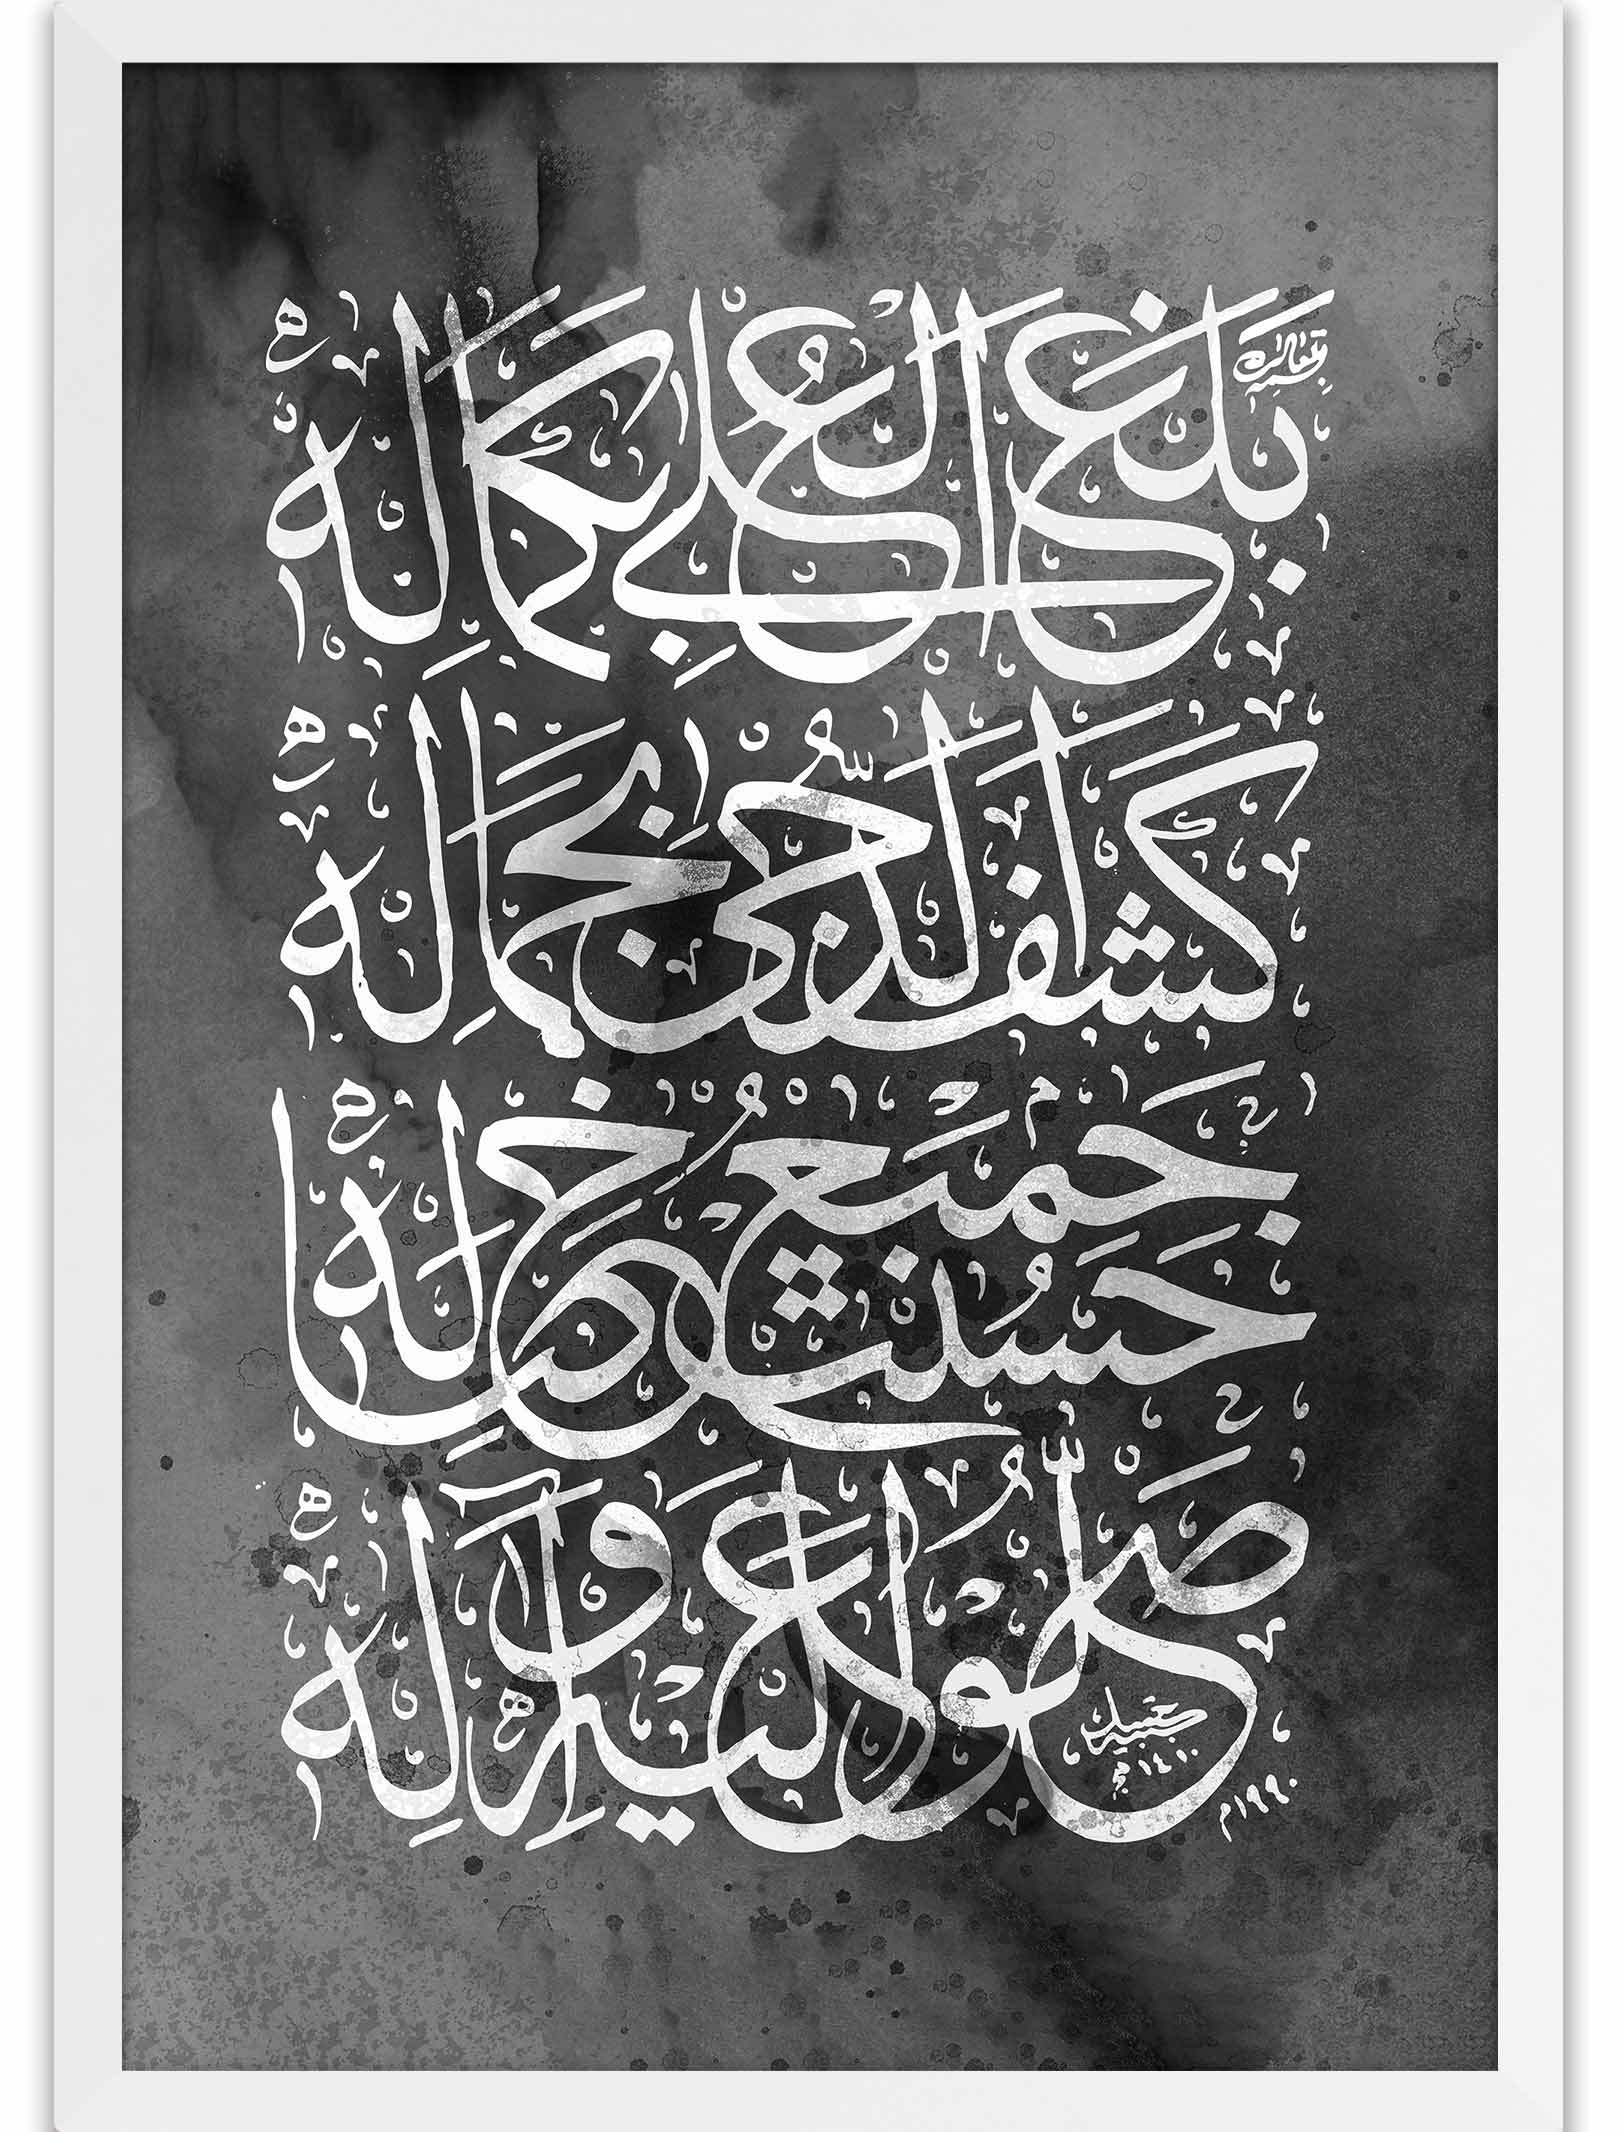 بَلَغَ الْعُلَى بِكَمَالِهِ
كَشَفَ الدُّجَى بِجَمَالِهِ
حَسُنَتْ جَمِيعُ خِصَالِهِ
صَلُّوا عَلَيْهِ وَآلِهِ
١٤١٠
١٩٩٠م